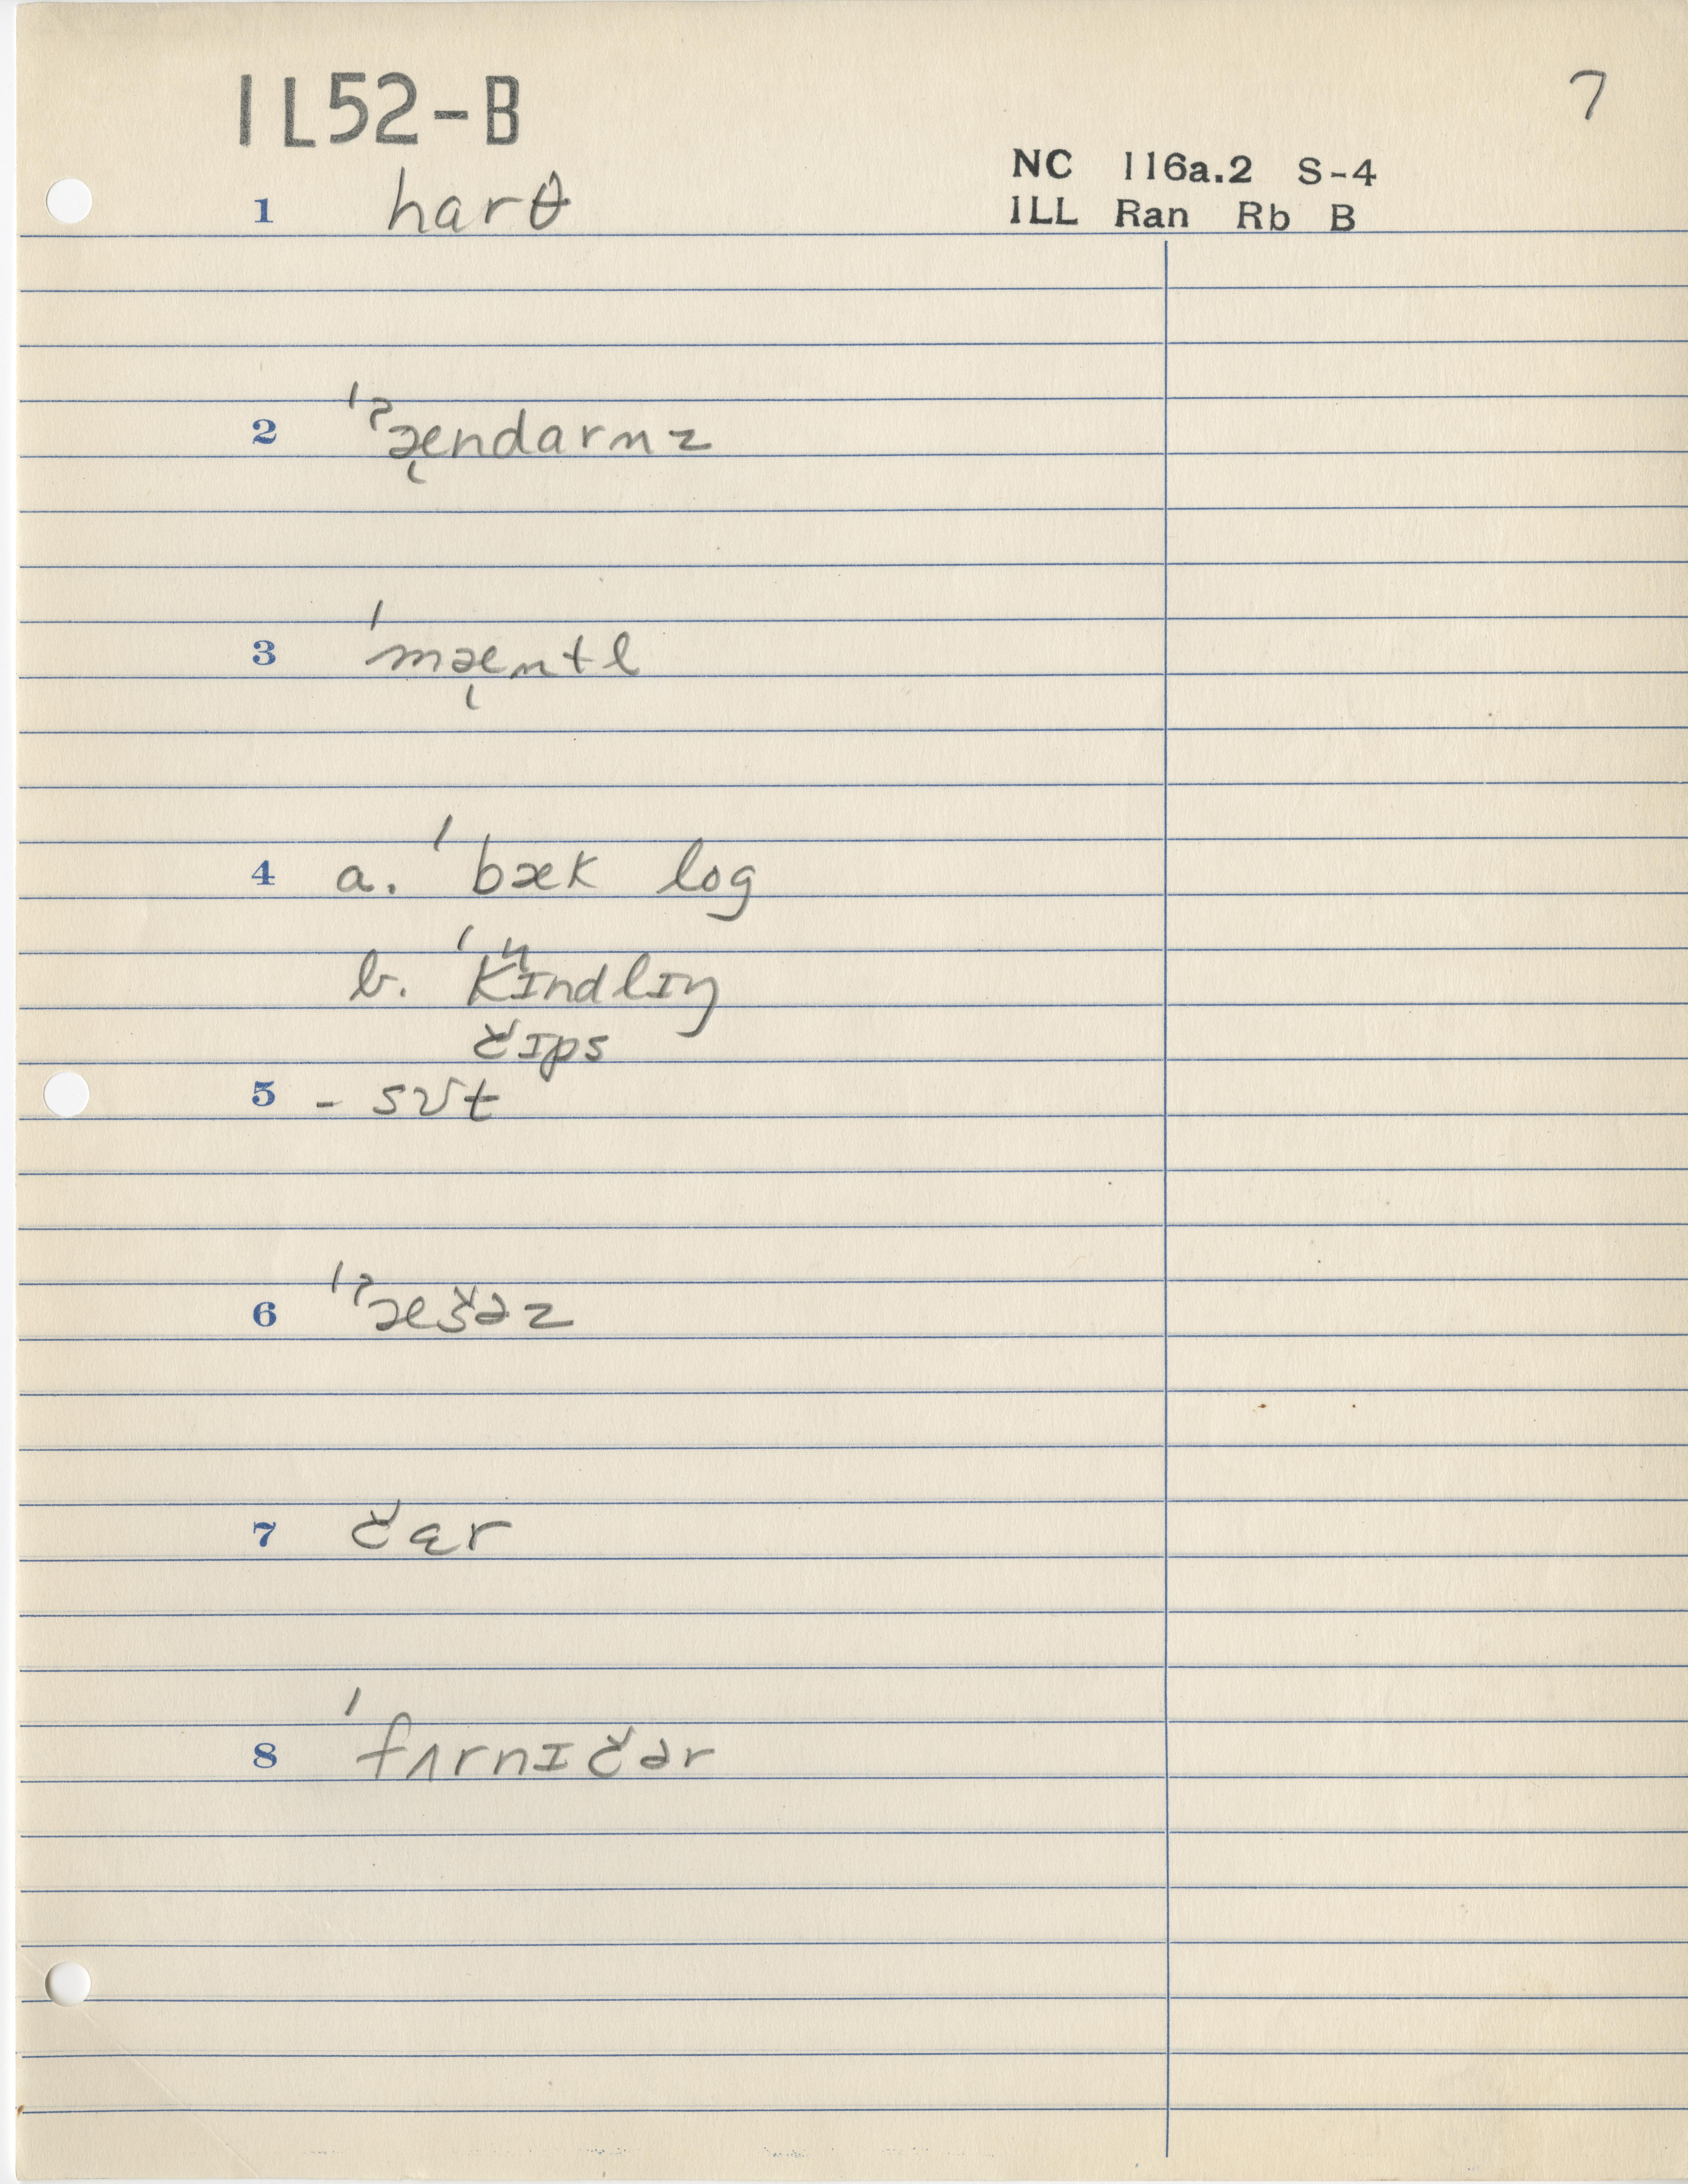 1L52-B
7
NC 116a.2 S-4
ILL Ran Rb B
1 harθ
2 ˈˀæ̨ndarnz
3 ˈmæ̨ntl
4 a. ˈbæk log
b. ˈkʰɪndlɪŋ
čɪps
5 - sʊt
6 ˈˀæšəz
7 čɛr
8 ˈfʌrnɪčər